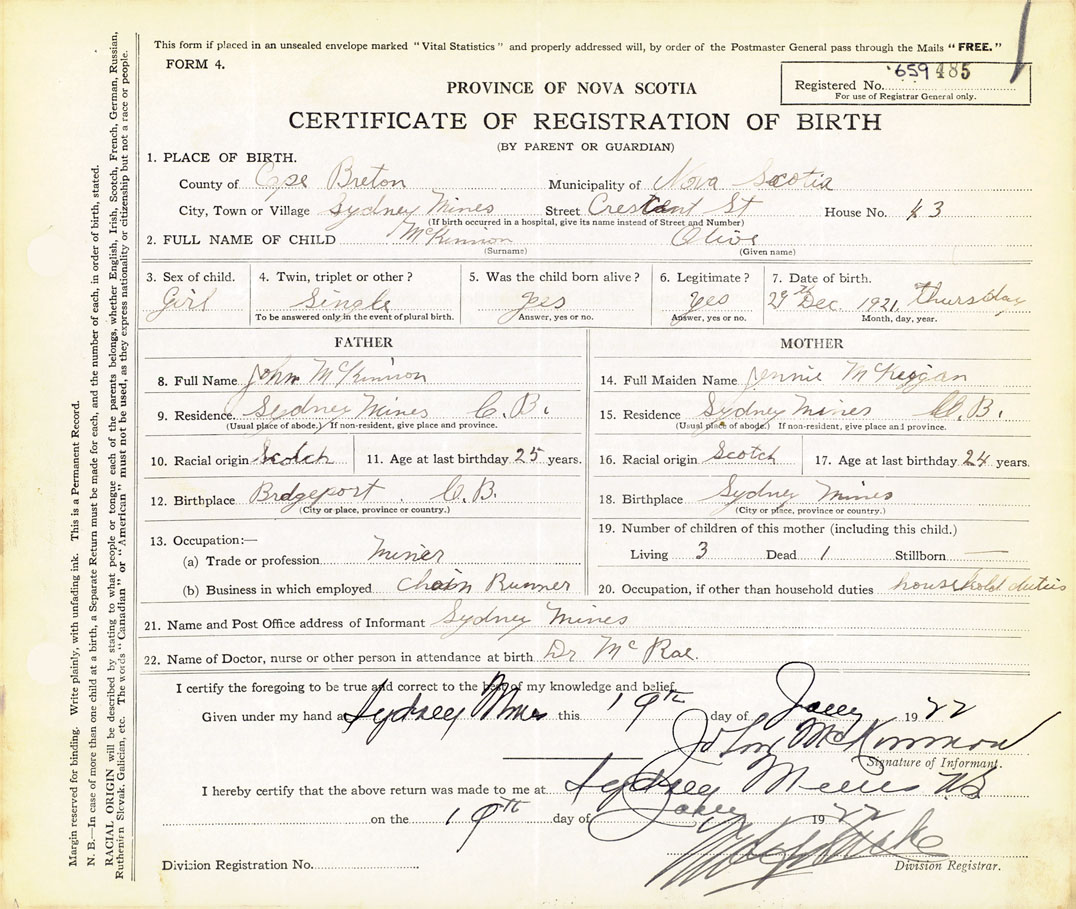 This form if placed in an unsealed envelope marked "Vital Statistics" and properly addressed will, by order of the Postmaster General pass through the Mails "FREE."
FORM 4.
659485
Registered No.
For use of Registrar General only.
PROVINCE OF NOVA SCOTIA
CERTIFICATE OF REGISTRATION OF BIRTH
(BY PARENT OR GUARDIAN)
1. PLACE OF BIRTH.
County of Cpe Breton Municipality of Nova Scotia
City, Town or Village Sydney Mines Street Crescent St House No. 43
(If birth occurred in a hospital, give its name instead of Street and Number)
2. FULL NAME OF CHILD McKinnon Olive
(Surname) (Given name)
3. Sex of child. 4. Twin, triplet or other? 5. Was the child born alive? 6. Legitimate? 7. Date of birth.
Girl Single Yes Yes 29th Dec. 1921 Thursday
To be answered only in the event of plural birth. Answer, yes or no. Answer, yes or no. Month, day, year.
FATHER
8. Full Name John McKinnon
9. Residence Sydney Mines C.B.
(Usual place of abode.) If non-resident, give place and province.
10. Racial origin Scotch 11. Age at last birthday 25 years.
12. Birthplace Brdgeport. C.B.
(City or place, province or country.)
13. Occupation:—
(a) Trade or profession Miner
(b) Business in which employed Chain Runner
MOTHER
14. Full Maiden Name Jennie McKeigan
15. Residence Sydney Mines C.B.
(Usual place of abode.) If non-resident, give place and province.
16. Racial origin Scotch 17. Age at last birthday 24 years.
18. Birthplace Sydney Mines
(City or place, province or country.)
19. Number of children of this mother (including this child.)
Living 3 Dead 1 Stillborn —
20. Occupation, if other than household duties household duties
21. Name and Post Office address of Informant Sydney Mines
22. Name of Doctor, nurse or other person in attendance at birth Dr McRae.
I certify the foregoing to be true and correct to the best of my knowledge and belief.
Given under my hand at Sydney Mines this 19th day of Jany 1922
John McKinnon
Signature of Informant.
I hereby certify that the above return was made to me at Sydney Mines NS
on the 19th day of Jany 1922
Division Registration No. Division Registrar.
Margin reserved for binding. Write plainly, with unfading ink. This is a Permanent Record.
N. B.—In case of more than one child at a birth, a Separate Return must be made for each, and the number of each, in order of birth, stated.
RACIAL ORIGIN will be described by stating to what people or tongue each of the parents belongs, whether English, Irish, Scotch, French, German, Russian,
Ruthenian Slovak, Galician, etc. The words "Canadian" or "American" must not be used, as they express nationality or citizenship but not a race or people.